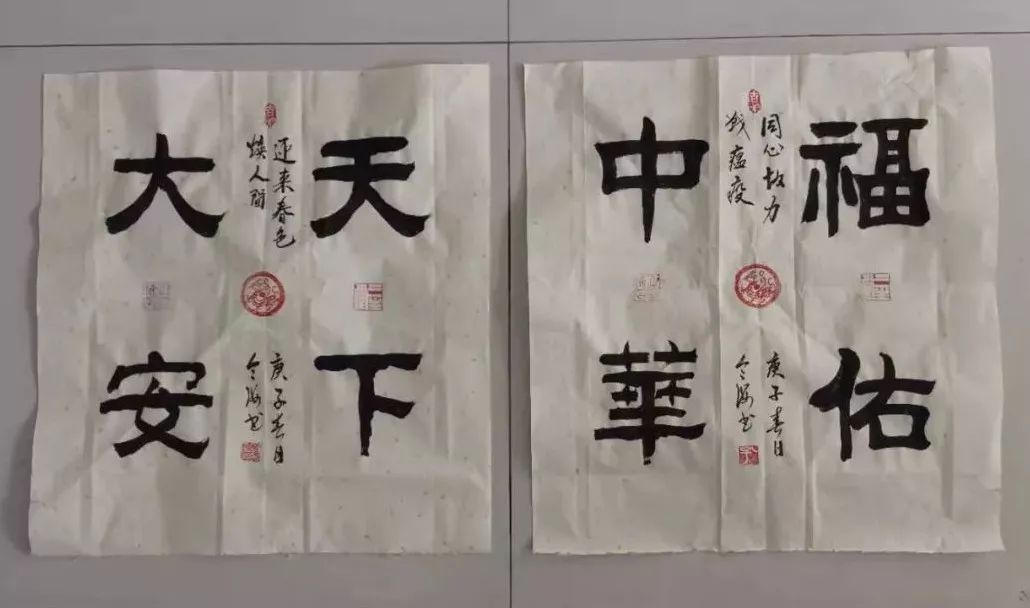 福佑
同心协力
战瘟疫
庚子春日
中華
天下
迎来春色
焕人间
庚子春日
大安